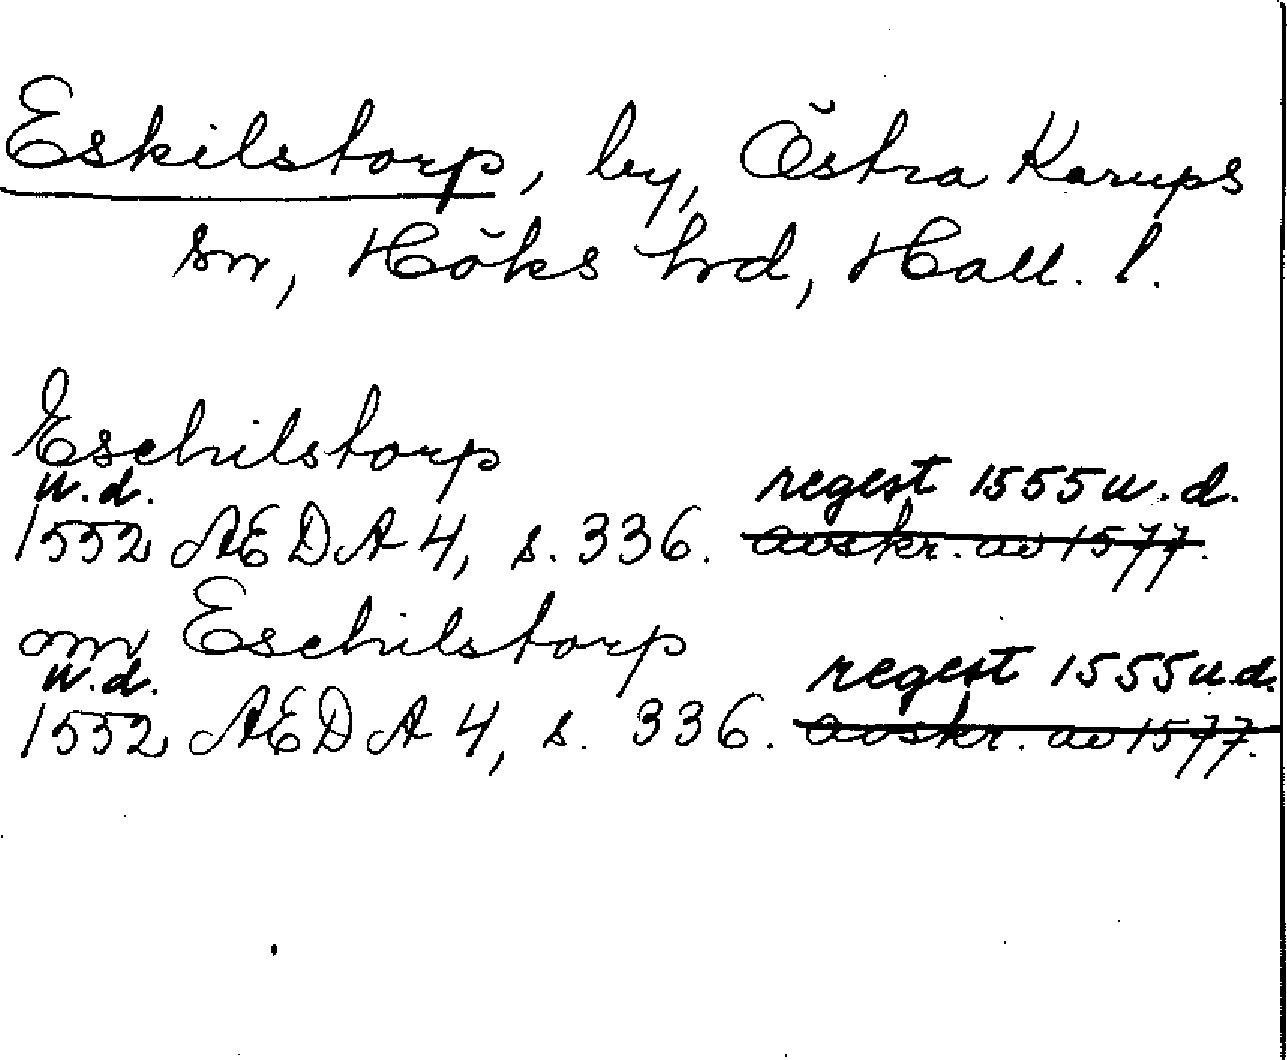 Eskilstorp, by, Östra Karups
sn, Höks hrd, Hall. l.
Eschilstorp
u.d. regest 1555 u.d.
1552 AEDA 4, s. 336. avskr. av 1577.
om Eschilstorp
u.d. regest 1555 u.d.
1552 AEDA 4, s. 336. avskr. av 1577.